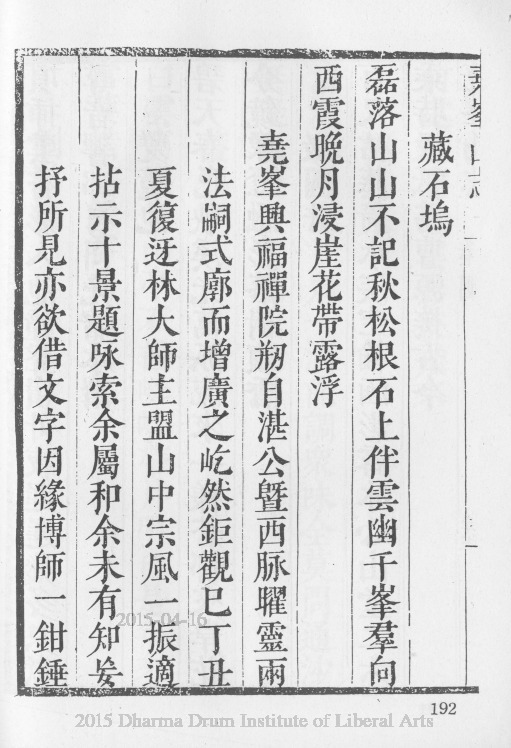 藏石塢
磊落山山不記秋松根石上伴雲幽千峯羣向
西霞晚月浸崖花帶露浮
堯峯興福禪院剏自湛公曁西脉曜靈兩
法嗣式廓而增廣之屹然鉅觀已丁丑
夏復迓林大師主盟山中宗風一振適
拈示十景題咏索余屬和余未有知妄
抒所見亦欲借文字因緣博師一鉗錘
2015-04-16
192
2015 Dharma Drum Institute of Liberal Arts